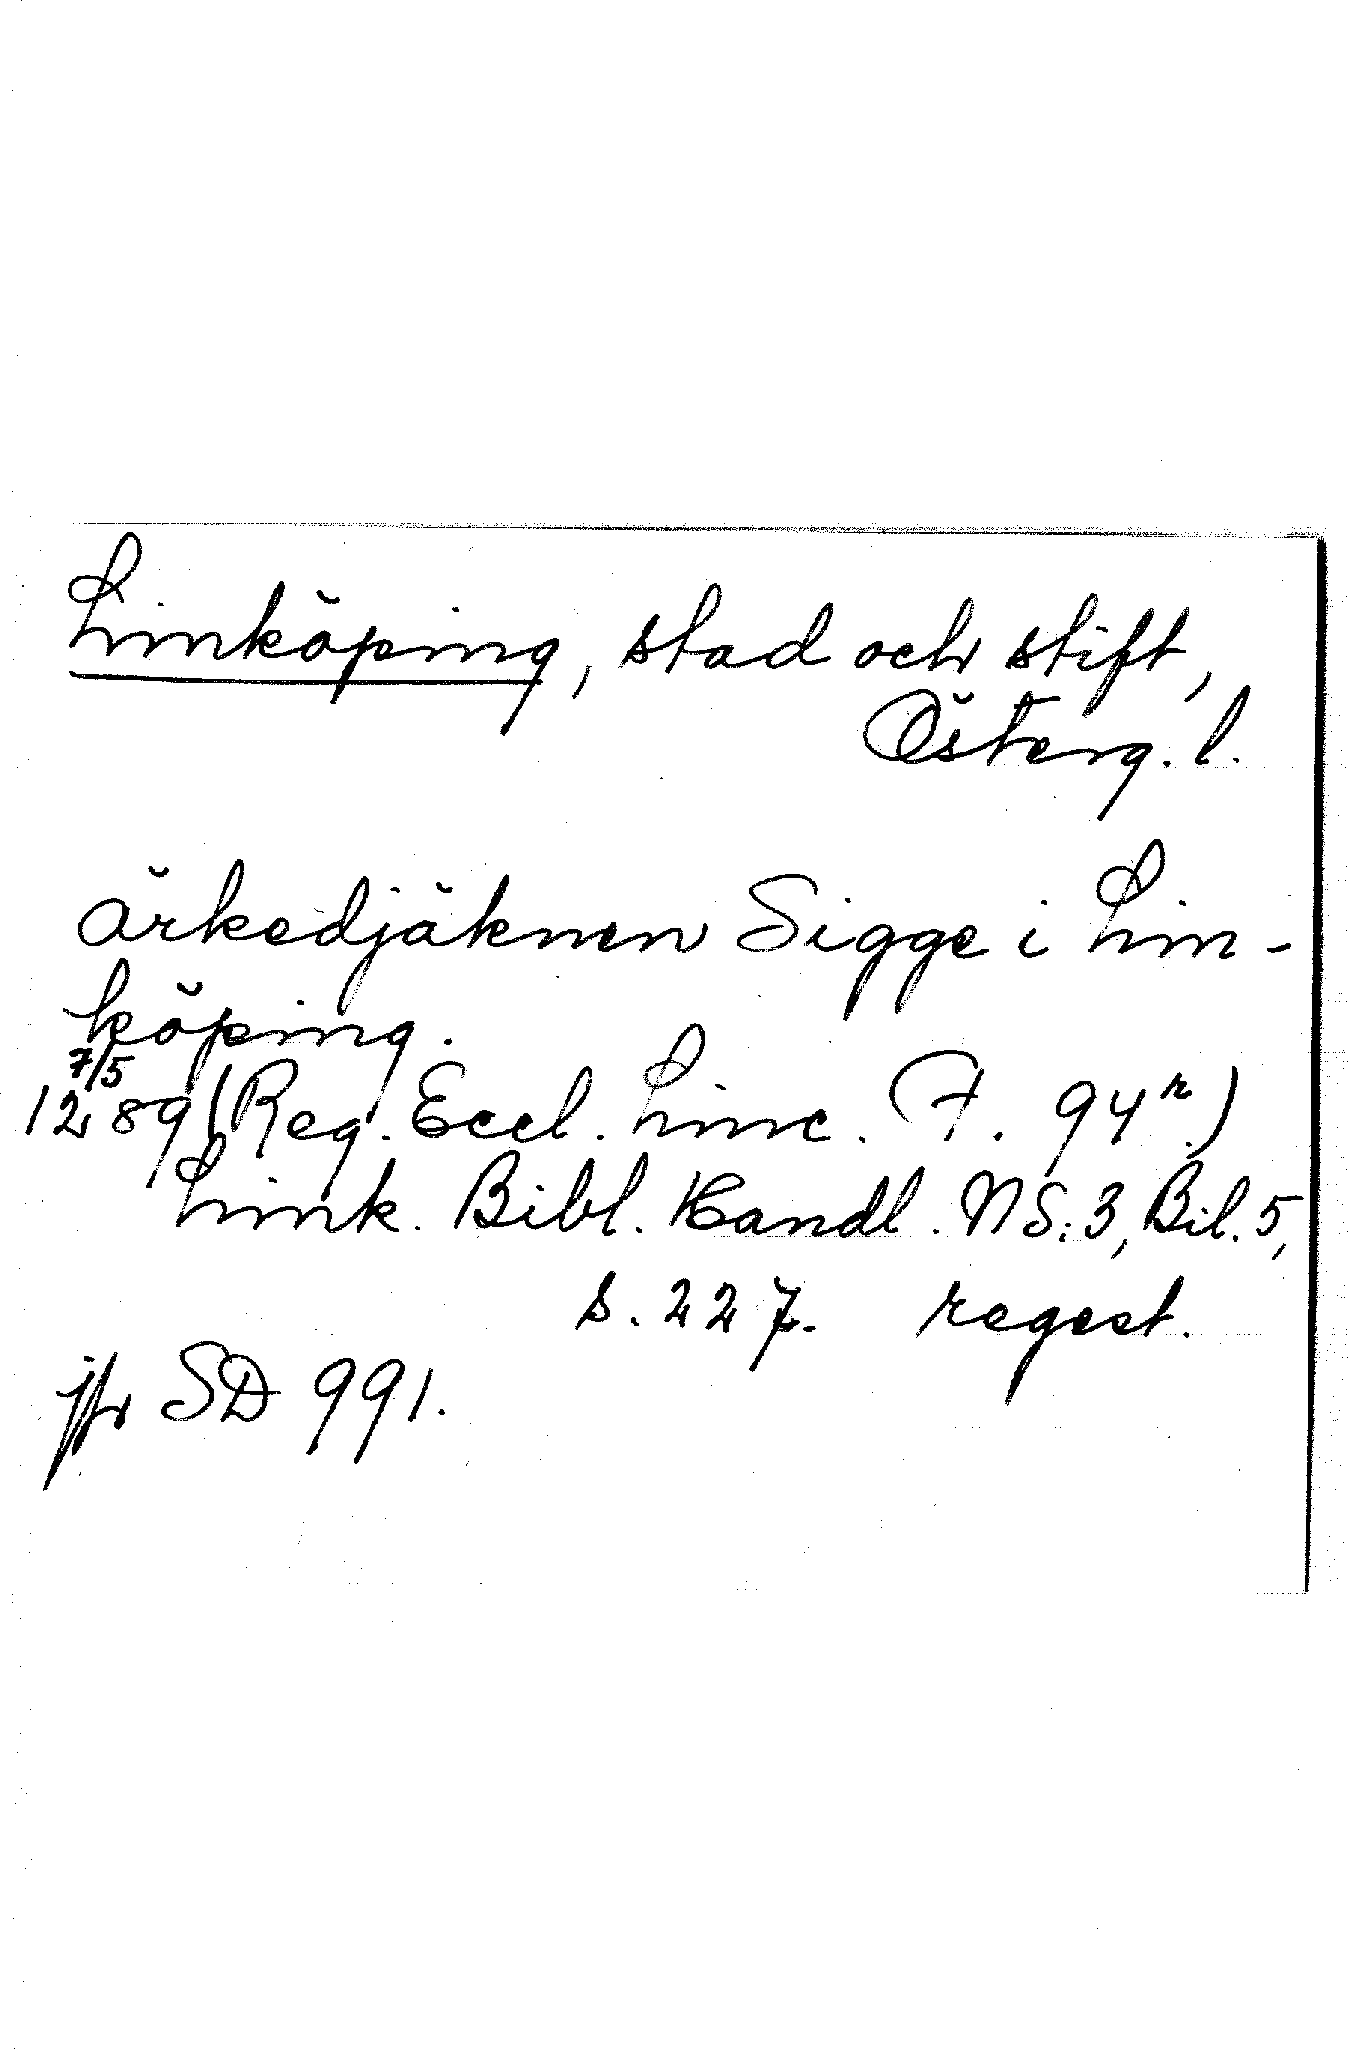 Linköping, stad och stift,
Österg. l.
ärkedjäknen Sigge i Lin-
köping.
7/5
1289 (Reg. Eccl. Linc. F. 94r.)
Link. Bibl. Handl. NS. 3, Bil. 5,
s. 227. regest.
jfr SD 991.